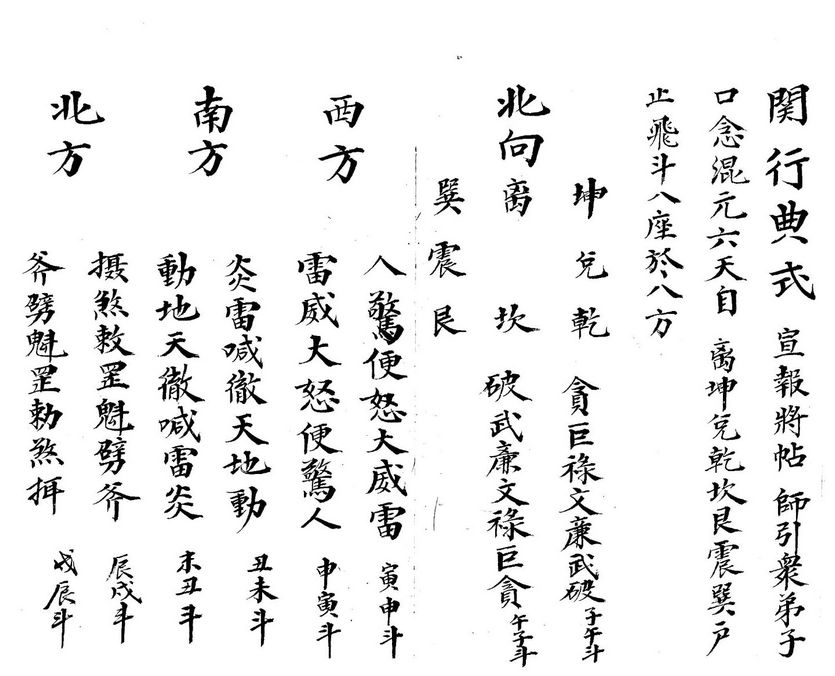 関行典式 宣報將帖 師引衆弟子
口念混元六天自 离坤兌乾坎艮震巽戶
止飛斗八座於八方
坤兌乾 貪巨祿文廉武破 子午斗
北向 离 坎 破武廉文祿巨貪 午子斗
巽震艮
人驚便怒大威雷 寅申斗
西方 雷威大怒便驚人 申寅斗
炎雷喊徹天地動 丑未斗
南方 動地天徹喊雷炎 未丑斗
摄煞敕罡魁劈斧 辰戌斗
北方 斧劈魁罡勅煞 戌辰斗